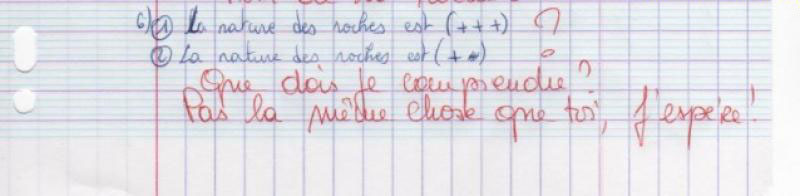 6) ① La nature des roches est (+++) ?
② La nature des roches est (+-)
Que dois je comprendre ?
Pas la même chose que toi, j'espère !